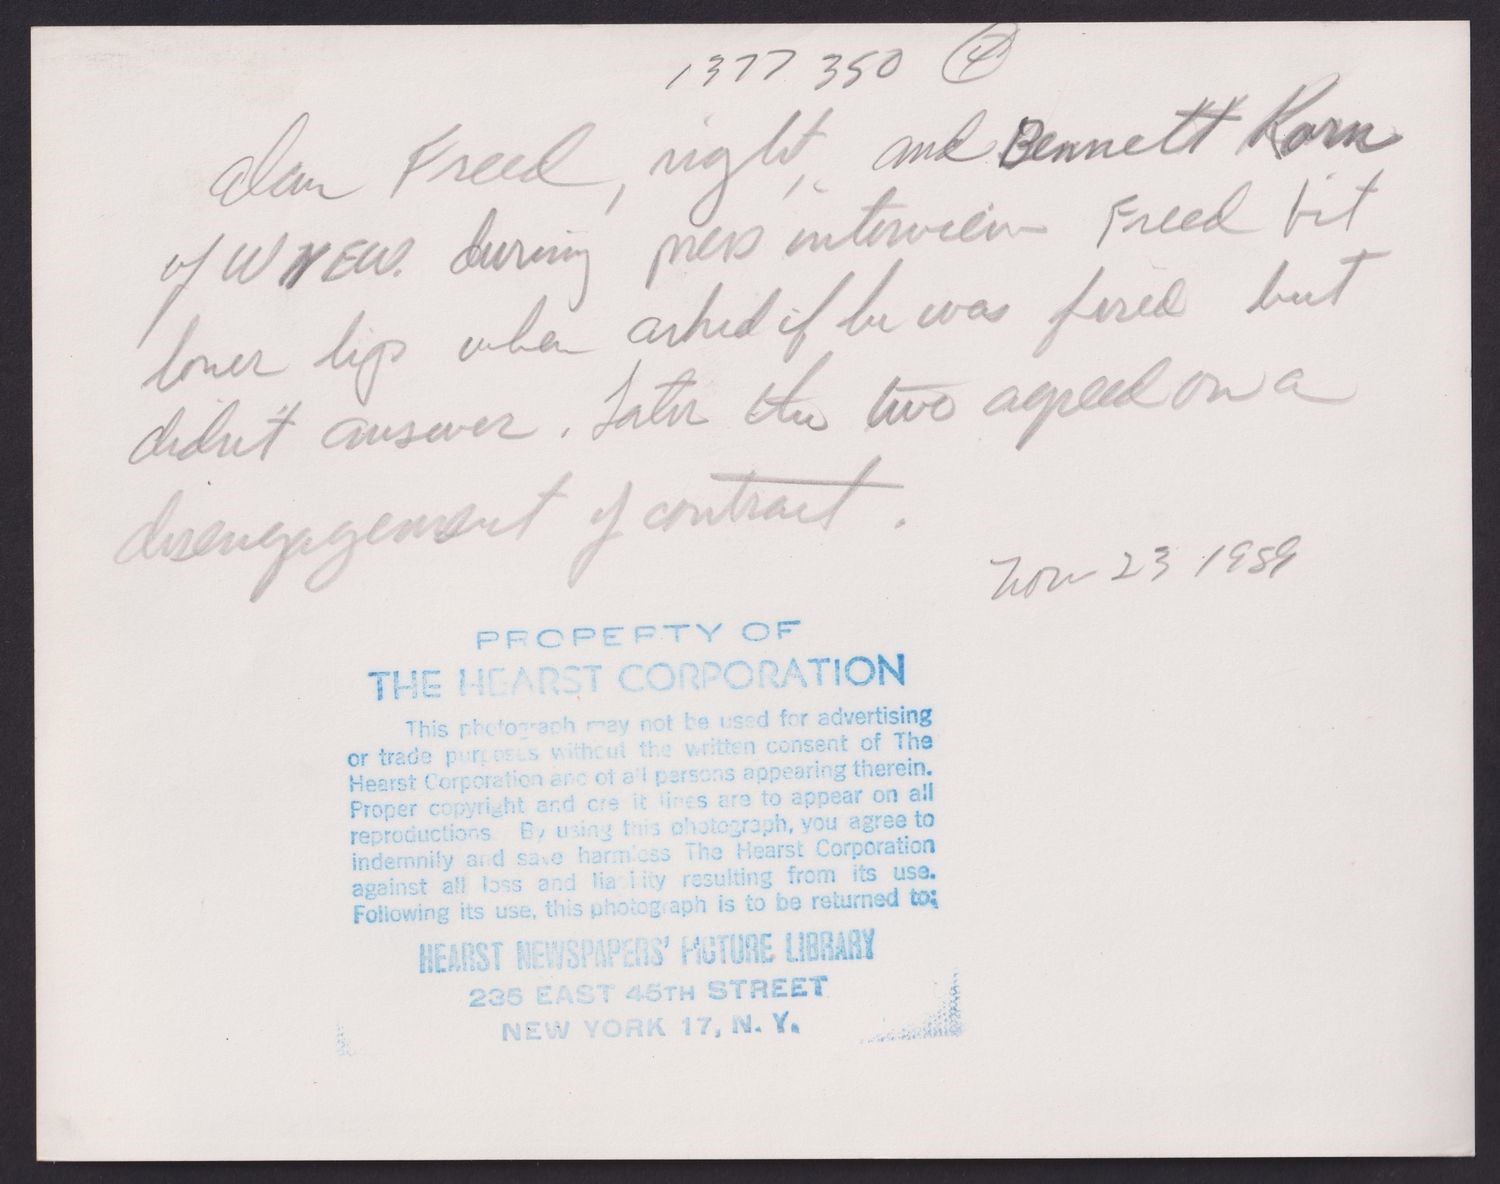 1377 350 4
Alan Freed, right, and Bennett Korn
of WNEW. during press interview Freed bit
lower lips when asked if he was fired but
didn't answer. Later the two agreed on a
disengagement of contract.
Nov 23 1959
PROPERTY OF
THE HEARST CORPORATION
This photograph may not be used for advertising
or trade purposes without the written consent of The
Hearst Corporation and of all persons appearing therein.
Proper copyright and credit lines are to appear on all
reproductions. By using this photograph, you agree to
indemnify and save harmless The Hearst Corporation
against all loss and liability resulting from its use.
Following its use, this photograph is to be returned to:
HEARST NEWSPAPERS' PICTURE LIBRARY
235 EAST 45TH STREET
NEW YORK 17, N. Y.